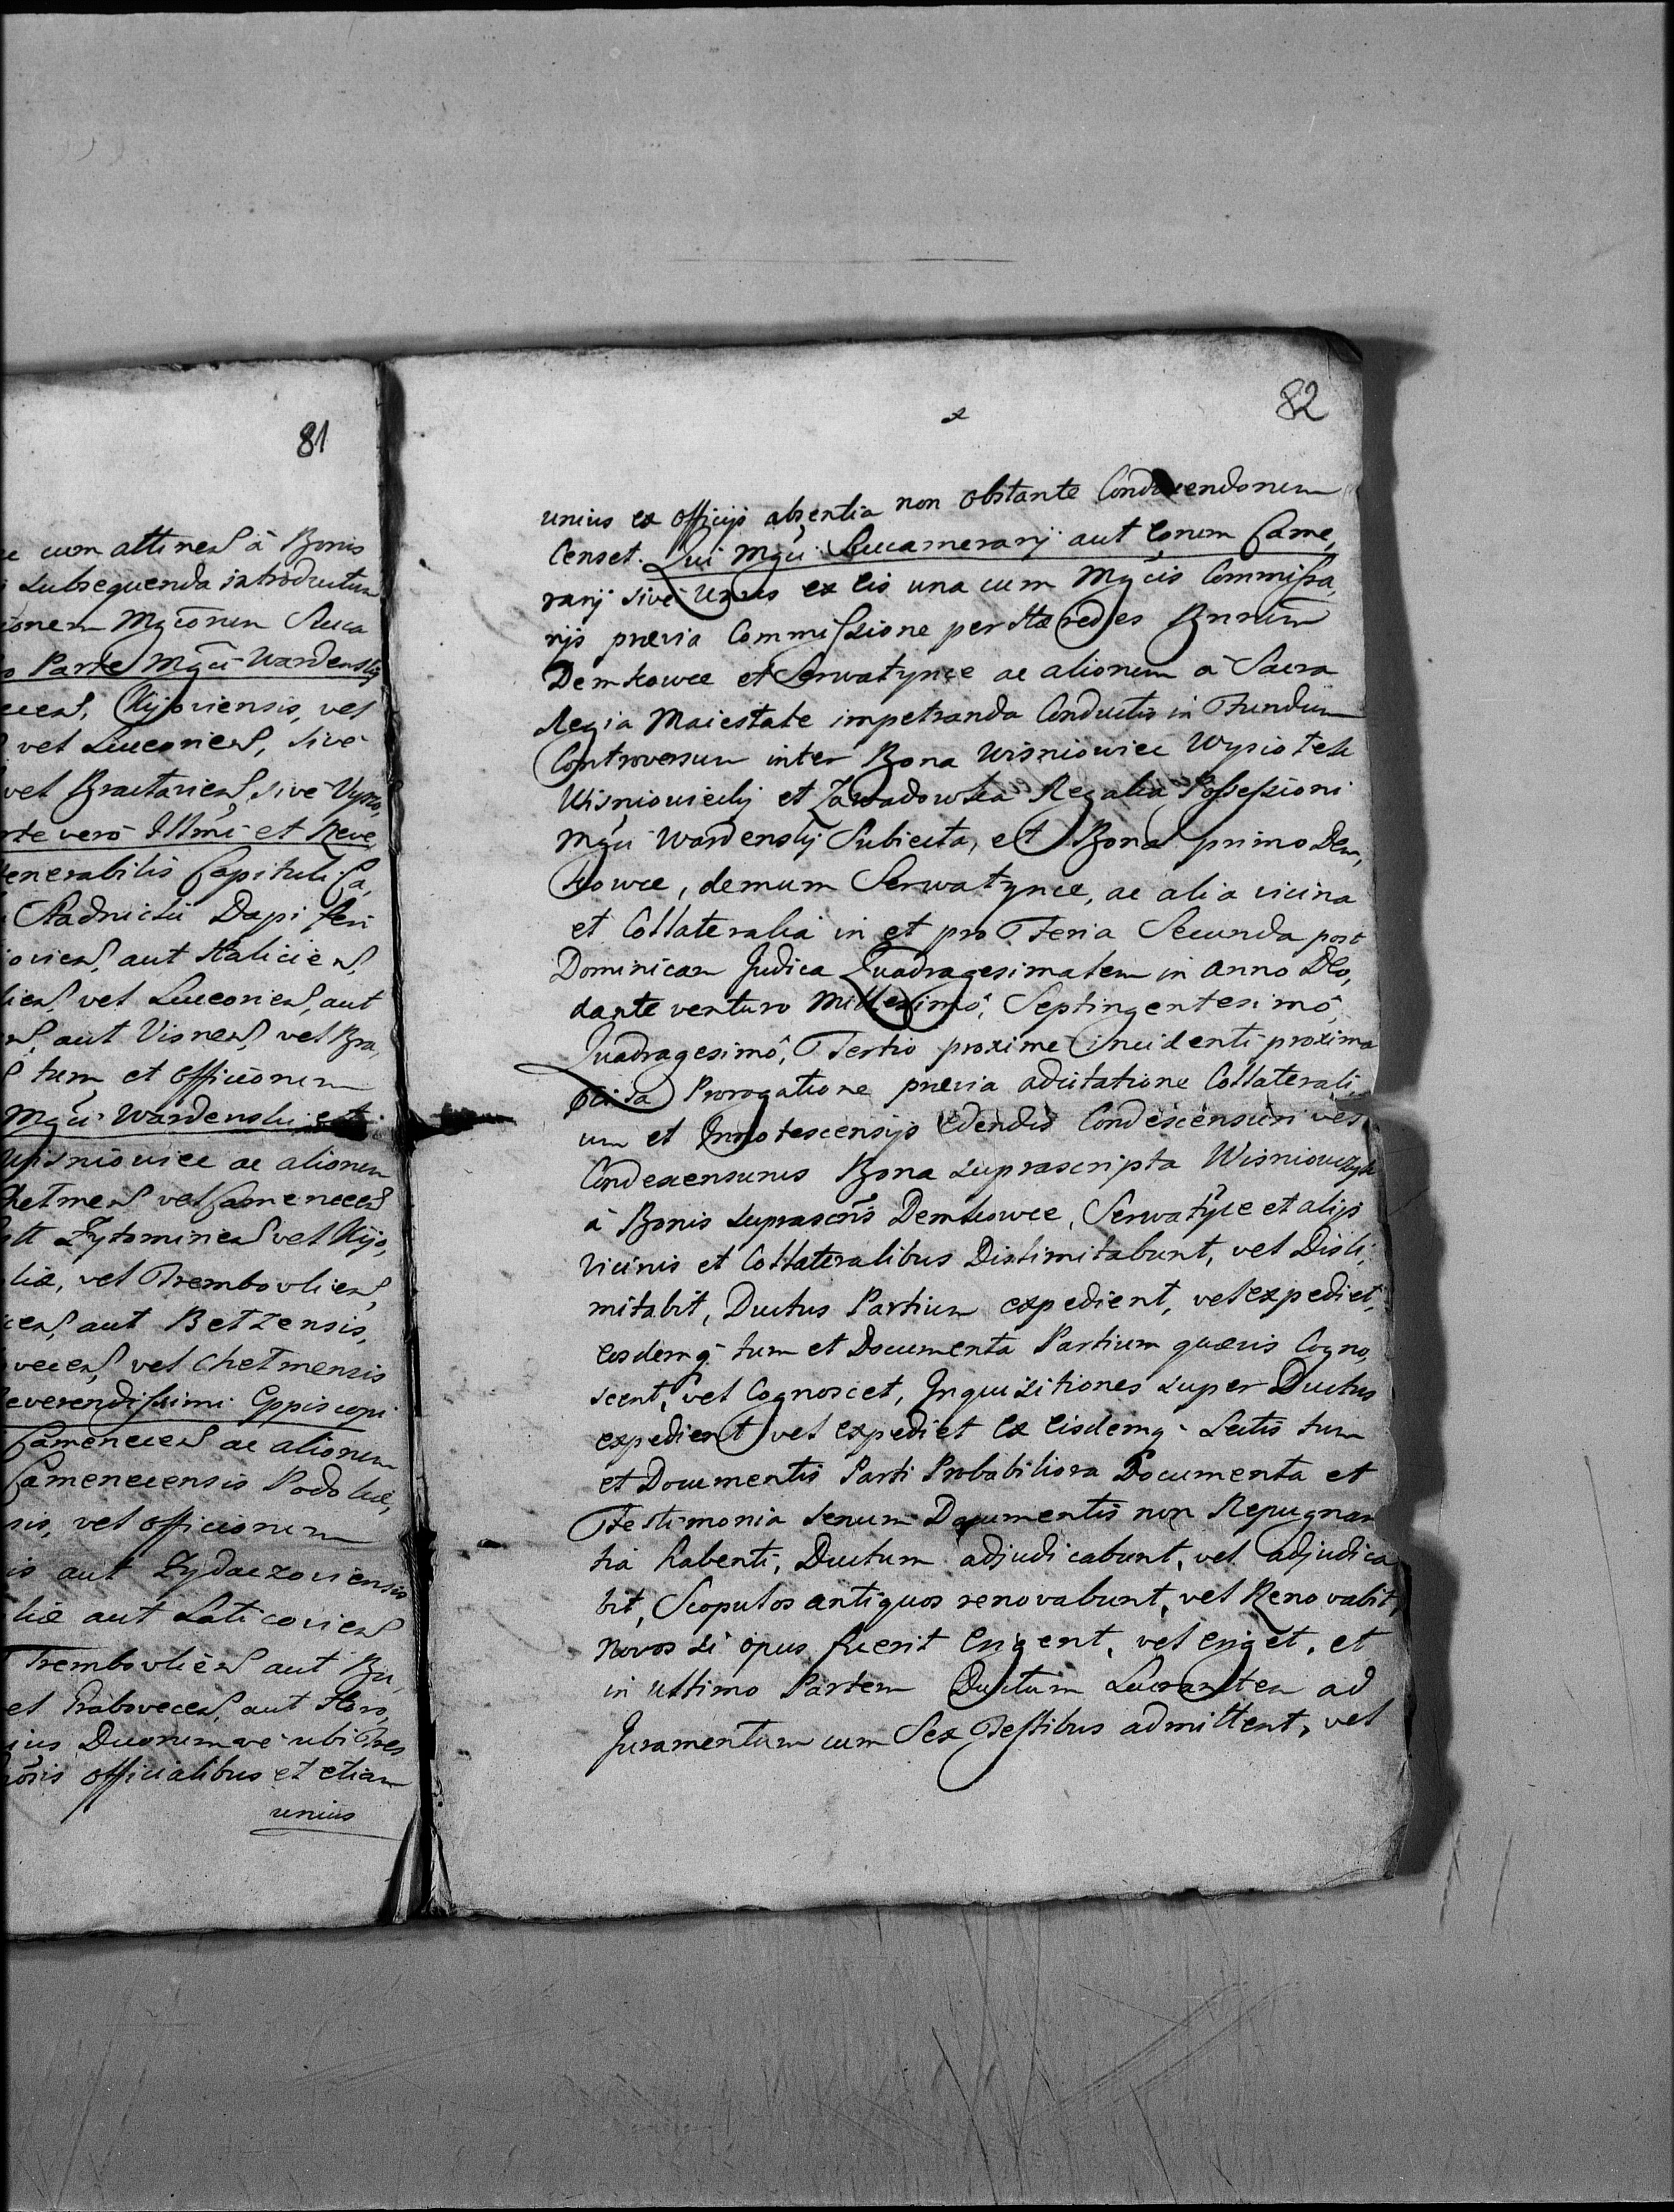 81
e cum attinen à Bonis
subsequenda introductum
ionem Mgcorum Succa
o Parte Mgci Wardenskij
ecen, Kijoviensis, vel
vel Luceorien, sive
vel Braclavien, sive Vyzo,
rte vero Illmi et Reve,
enerabilis Capituli Ca,
Stadnicki Dapi feri
iovien, aut Halicien,
lien, vel Luceorien, aut
aut Visnen, vel Bra,
tum et Officionum
Mgci Wardenski et
Wisniowiec ac aliorum
Chelmen vel Camenecen
Zytominien vel Kijo,
liæ, vel Trembovlien,
cen, aut Betzensis,
vecen, vel Chelmensis
everendissimi Eppiscopi
Camenecen ac aliorum
Camenecensis Podoliæ,
sis, vel officionum
is aut Zydaczoviensis
liæ aut Laticovien
Trembovlien aut Bu,
et Grabovecen, aut Horo,
ius Duorumve ubi Tres
officialibus et etiam
unius
82
unius ex officijs absentia non obstante Condivendonum
Censet. Qui Mgci Succamerarij aut Eorum Came,
rarij sive Unus ex Eis una cum Mgcis Commissa,
rijs prævia Commissione per Hæredes Bnrum
Demkowce et Serwatynce ac aliorum a Sacra
Regia Maiestate impetranda Conductis in Fundum
Controversum inter Bona Wisniowiec Wysiotek
Wisniowiecky et Zawadowka Regalia Possessioni
Mgci Wardenskij Subiecta, et Bona primo Dem,
kowce, demum Serwatynce, ac alia vicina
et Collateralia in et pro Feria Secunda post
Dominicam Judica Quadragesimalem in anno Deo,
dante venturo Millesimô, Septingentesimô,
Quadragesimô, Tertio proxime incidenti proxima
Prorogatione prævia adcitatione Collaterali
um et Innotescensijs Edendis Condescensuri vel
Condescensurus Bona suprascripta Wisniowczyk
à Bonis suprascris Demkowce, Serwatyce et alijs
vicinis et Collateralibus Dislimitabunt, vel Disli,
mitabit, Ductus Partium expedient, vel expediet,
Eosdemq tum et Documenta Partium quævis Cogno,
scent, vel Cognoscet, Inquisitiones super Ductus
expedient vel expediet Ex Eisdemq Lectis tum
et Documentis Parti Probabiliora Documenta et
Testimonia senum Documentis non Repugnan
tia habenti, Ductum adjudicabunt, vel adjudica
bit, Scopulos antiquos renovabunt, vel Renovabit,
Novos si opus fuerit Erigent, vel eriget, et
in ultimo Partem Ductum Lucrantem ad
Juramentum cum Sex Testibus admittent, vel